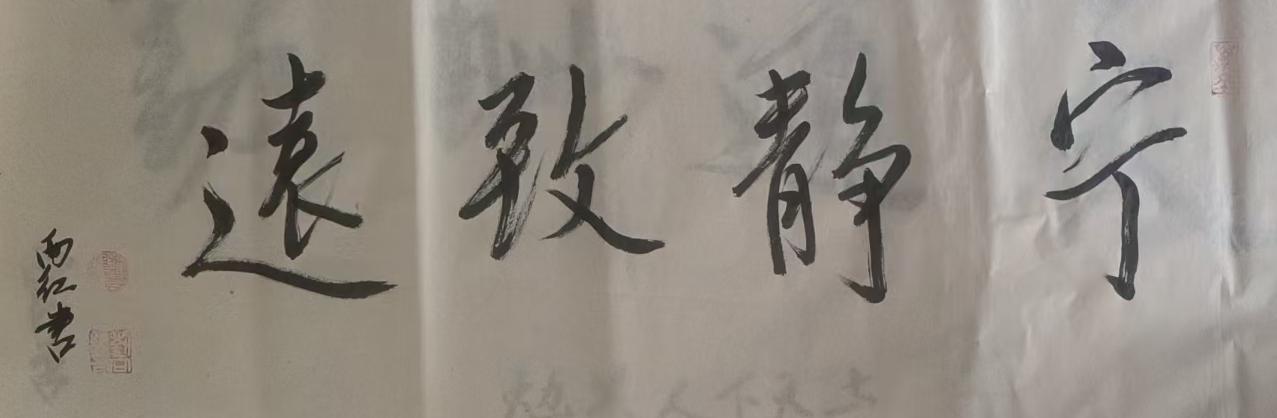 宁静致遠
雨红书